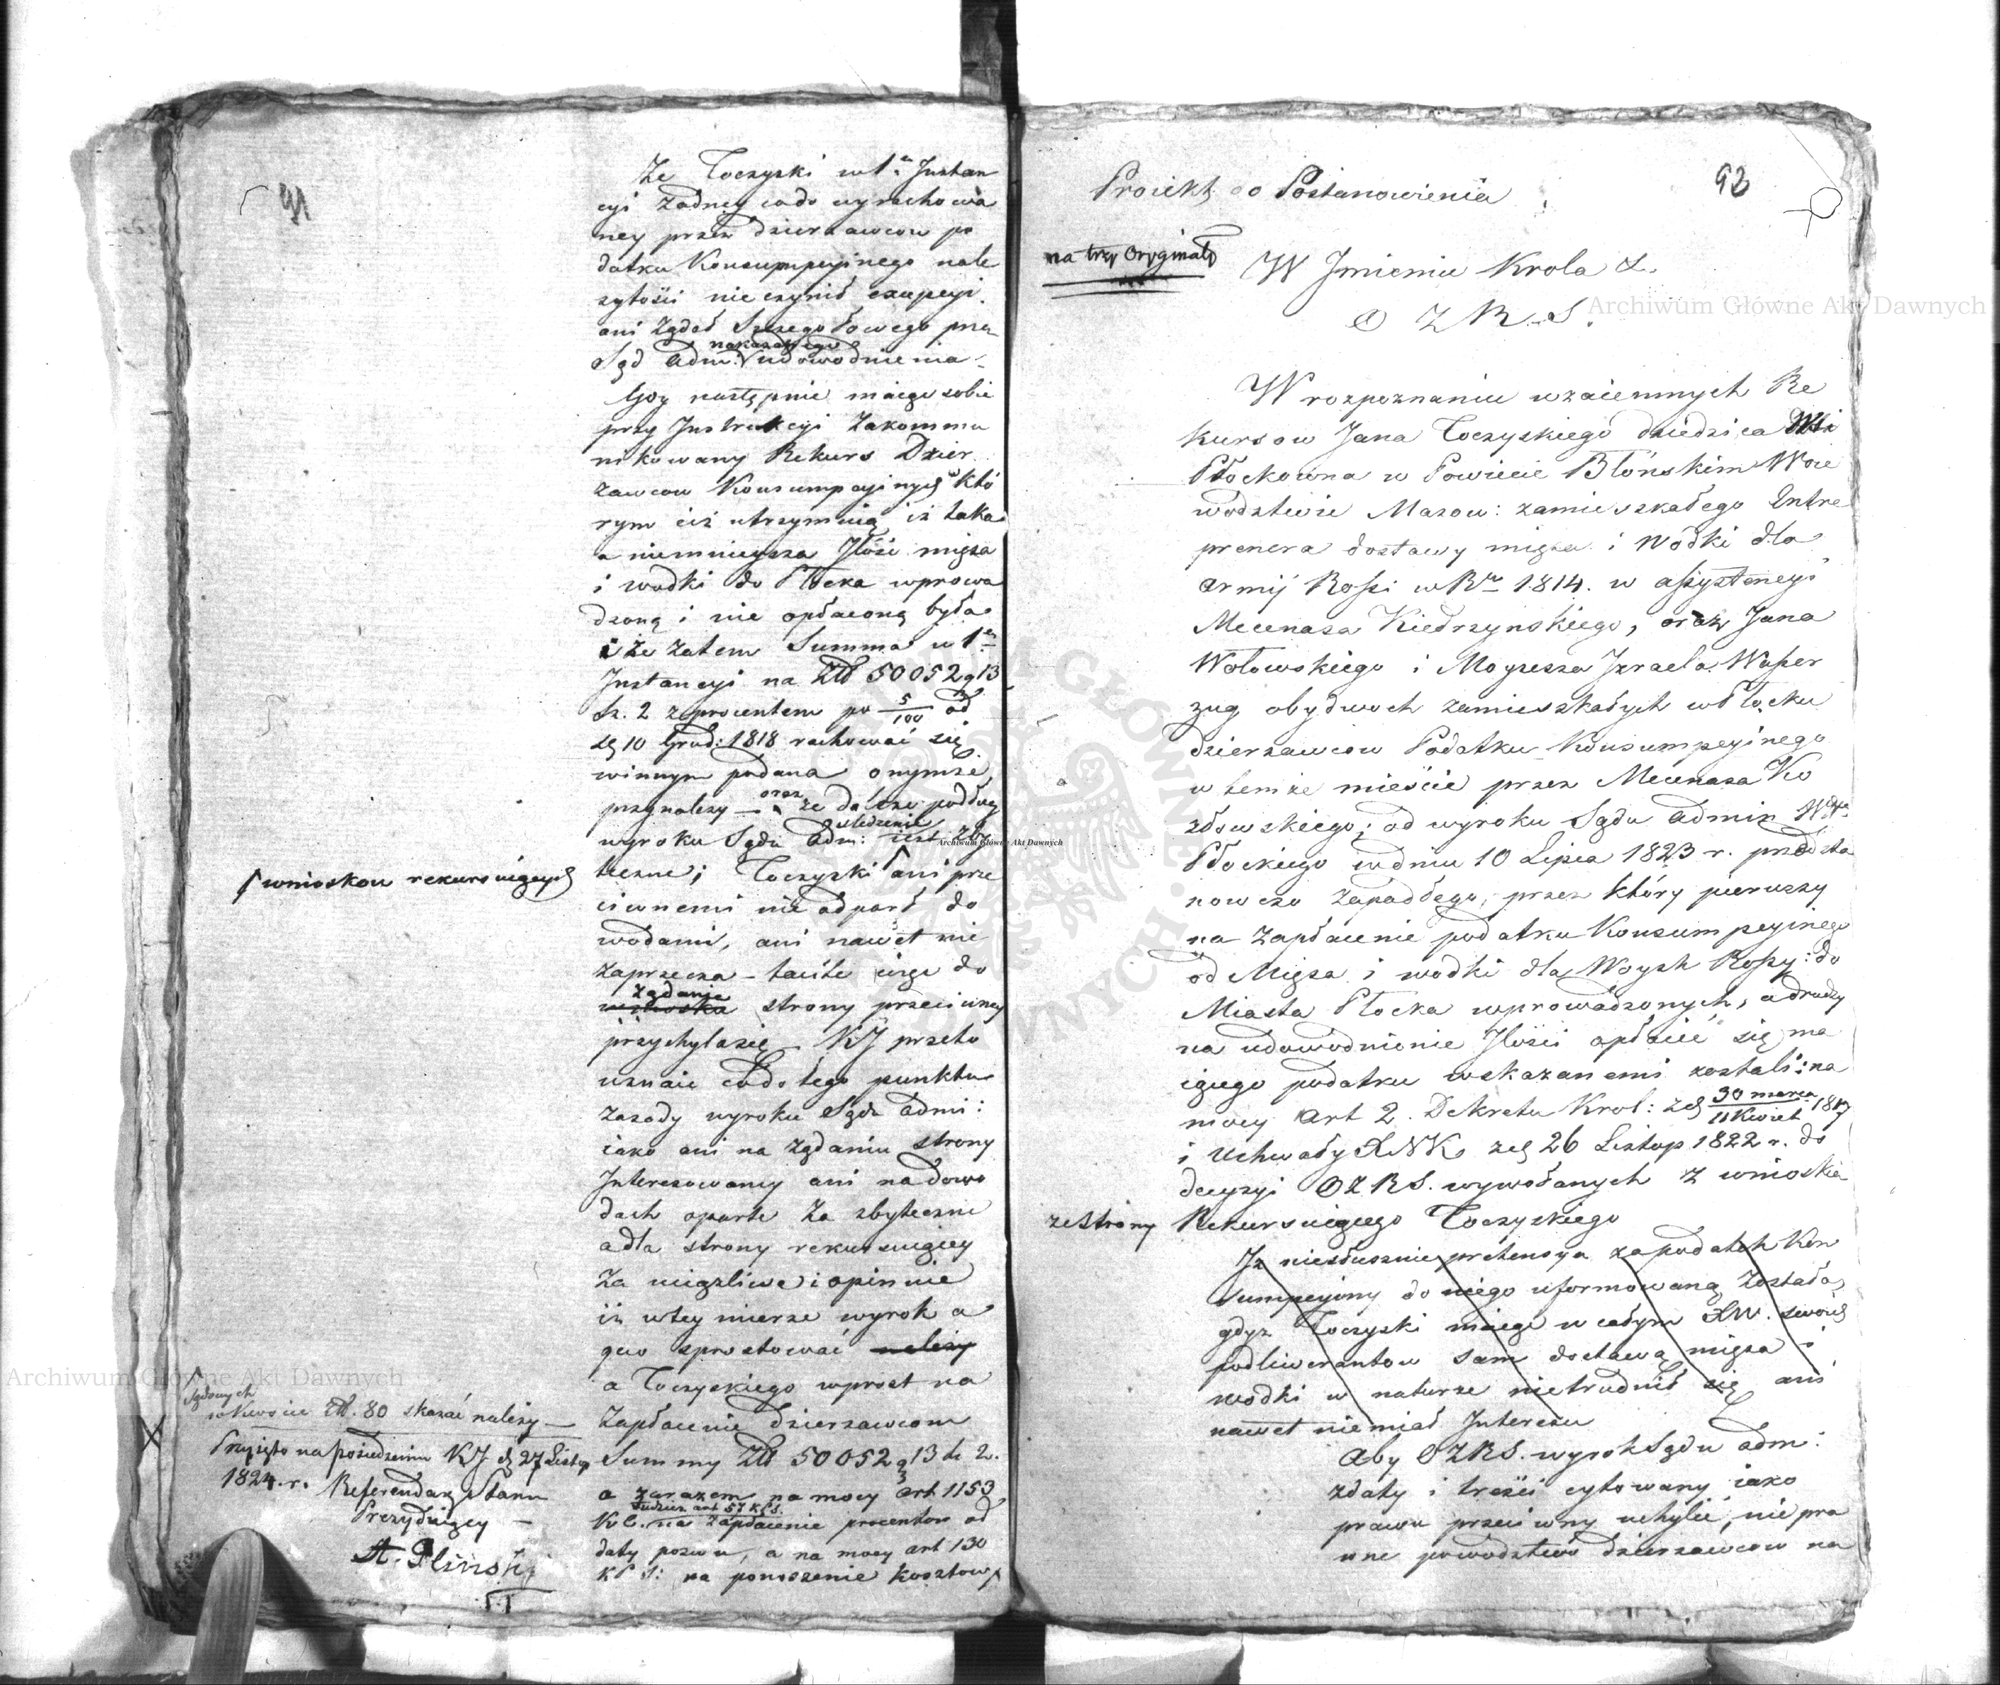 91
Że Toczyski w 1ey Instan
cyi żadney co do wyrachowa
ney przez dzierzawcow po
datku Konsumpcyinego nale
zytości nie czynił excepcyi
ani żądał Szczegołowego przez
Sąd Adm: nakazanego udowodnienia
Gdy następnie maiąc sobie
przy Instrukcyi zakommu
nikowany Rekurs Dzier
zawcow Konsumpcyinych w któ
rym ciż utrzymuią iż taka
a niemnieysza Ilość mięsa
i wodki do Płocka wprowa
dzoną i nie opłaconą była
i że zatem Summa w 1ey
Instancyi na Złł 50052 g 13
sz. 2 z procentem po 5/100 od
d 10 Grud: 1818 rachować się
winnym podana onymże
przynależy — oraz że dalsze podług
wyroku Sądu Adm: śledzenie iest zby
teczne; Toczyski ani prze
wnioskow rekursuiących
ciwnemi nie odparł do
wodami, ani nawet nie
zaprzecza — taiże do
żądania wnioska strony przeciwney
przychyla się — KJ przeto
uznaie co do tego punktu
zasady wyroku Sądu Admi:
iako ani na żądaniu strony
Interesowaney ani na dowo
dach oparte za zbyteczne
a dla strony rekursuiącey
za uciążliwe i opiniuie
iż w tey mierze wyrok a
quo sprostować należy
a Toczyskiego wprost na
zapłacenie dzierzawcom
Summy Złł 50052 g 13 sz 2.
a zarazem na mocy art 1153
K C. tudzież art 57 KPS. na zapłacenie procentow od
daty pozwu, a na mocy art 130
K P S: na ponoszenie kosztow
Sądowych
w kwocie Zł. 80 skazać należy —
Przyięto na posiedzeniu KJ d 27 Listop
1824. r. Referendarz Stanu
Prezyduiący —
A. Pliński
92
Proiekt do Postanowienia
na trzy Oryginały
W Imieniu Krola &.
O Z R S.
W rozpoznaniu wzaiemnych Re
kursow Jana Toczyskiego dziedzica Wsi
Płockowna w Powiecie Błońskim Woie
wodztwie Mazow: zamieszkałego Entre
prenera dostawy mięsa i wodki dla
armij Rossi w Ru 1814. w assystencyi
Mecenasa Kiedrzynskiego, oraz Jana
Wołowskiego i Moyżesza Izraela Wasser
zug obydwoch zamieszkałych w Płocku
dzierzawcow Podatku Konsumpcyinego
w temże mieście przez Mecenasa Ko
złowskiego; od wyroku Sądu Admin Wdztw
Płockiego w dniu 10 Lipca 1823 r. przedsta
nowczo zapadłego, przez który pierwszy
na zapłacenie podatku Konsumpcyinego
od Mięsa i wodki dla Woysk Rossy: do
Miasta Płocka wprowadzonych, a drudzy
na udowodnienie Ilości opłacić się ma
iącego podatku wskazanemi zostali: na
mocy Art 2. Dekretu Krol: z d 30 marca / 11 Kwiet 1817
i Uchwały XNK z d 26 Listop 1822 r. do
decyzyi OZRS. wywołanych z wnioskie
ze strony Rekursuiącego Toczyskiego
Iż niesłusznie pretensya za podatek Kon
sumpcyiny do niego uformowaną została,
gdyż Toczyski maiąc w całym XW. swoich
podliwerantow sam dostawą mięsa i
wodki w naturze nie trudnił się ani
nawet niemiał Interesu
Aby OZRS. wyrok Sądu Adm:
z daty i treści cytowany iako
prawu przeciwny uchylić, nie pra
wne powodztwo dzierzawcow na
Archiwum Główne Akt Dawnych
Archiwum Główne Akt Dawnych
Archiwum Główne Akt Dawnych